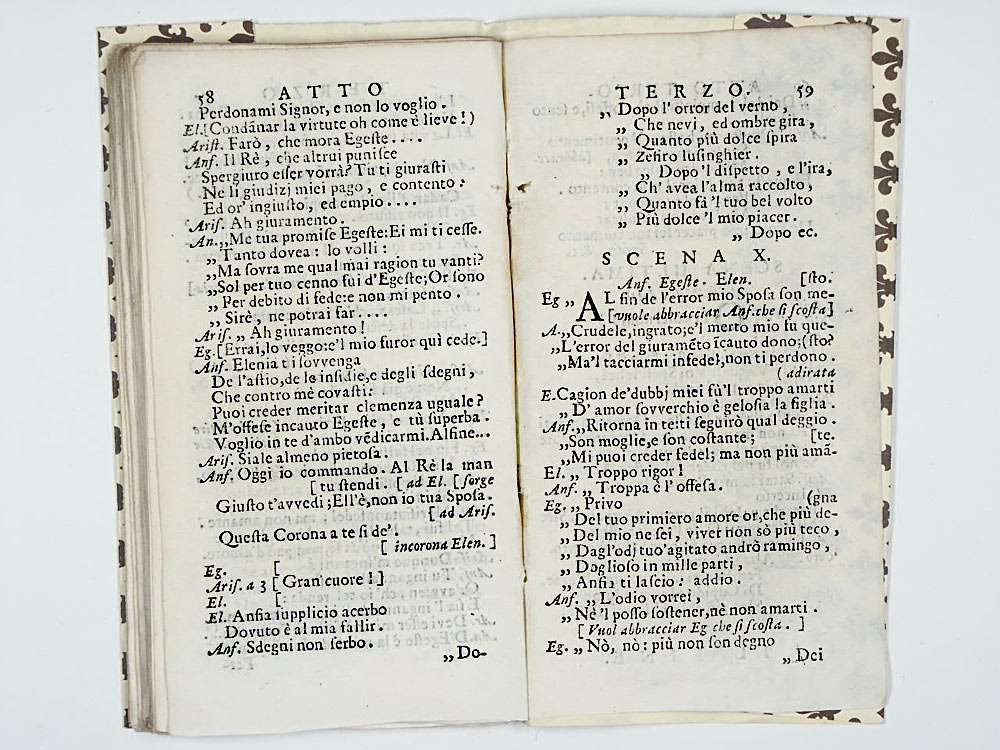 58 ATTO
Perdonami Signor, e non lo voglio.
El. [Condānar la virtute oh come è lieve!)
Arist. Farò, che mora Egeste....
Anf. Il Rè, che altrui punisce
Spergiuro esser vorrà? Tu ti giurasti
Ne li giudizj miei pago, e contento:
Ed or' ingiusto, ed empio....
Aris. Ah giuramento.
An. „Me tua promise Egeste: Ei mi ti cesse.
„Tanto dovea: lo volli:
„Ma sovra me qual mai ragion tu vanti?
„Sol per tuo cenno fui d'Egeste; Or sono
„Per debito di fede: e non mi pento.
„Sirè, ne potrai far....
Aris. „Ah giuramento!
Eg. [Errai, lo veggo: e'l mio furor quì cede.]
Anf. Elenia ti sovvenga
De l'astio, de le insidie, e degli sdegni,
Che contro mè covasti:
Puoi creder meritar clemenza uguale?
M'offese incauto Egeste, e tù superba.
Voglio in te d'ambo vēdicarmi. Alfine...
Aris. Siale almeno pietosa.
Anf. Oggi io commando. Al Rè la man
[tu stendi. [ad El. [sorge
Giusto t'avvedi; Ell'è, non io tua Sposa.
[ad Aris.
Questa Corona a te si de'.
[incorona Elen.]
Eg. [
Aris. a 3 [Gran cuore!]
El. [
El. Anfia supplicio acerbo
Dovuto è al mia fallir.
Anf. Sdegni non serbo.
„Do-
TERZO. 59
„Dopo l'orror del verno,
„Che nevi, ed ombre gira,
„Quanto più dolce spira
„Zefiro lusinghier.
„Dopo 'l dispetto, e l'ira,
„Ch' avea l'alma raccolto,
„Quanto fà 'l tuo bel volto
„Più dolce 'l mio piacer.
„Dopo ec.
SCENA X.
Anf. Egeste. Elen. [sto.
Eg „AL fin de l'error mio Sposa son me-
[vuole abbracciar Anf. che si scosta]
A. „Crudele, ingrato; e'l merto mio fu que-
„L'error del giuramēto īcauto dono; (sto?
„Ma'l tacciarmi infedel, non ti perdono.
(adirata
E. Cagion de'dubbj miei fù'l troppo amarti
„D' amor sovverchio è gelosia la figlia.
Anf. „Ritorna in te: ti seguirò qual deggio.
„Son moglie, e son costante; [te.
„Mi puoi creder fedel; ma non più amā-
El. „Troppo rigor!
Anf. „Troppa è l'offesa.
Eg. „Privo (gna
„Del tuo primiero amore or, che più de-
„Del mio ne sei, viver non sò più teco,
„Dagl'odj tuo'agitato andrò ramingo,
„Doglioso in mille parti,
„Anfia ti lascio: addio.
Anf. „L'odio vorrei,
„Nè 'l posso sostener, nè non amarti.
[Vuol abbracciar Eg che si scosta.]
Eg. „Nò, nò: più non son degno
„Dei